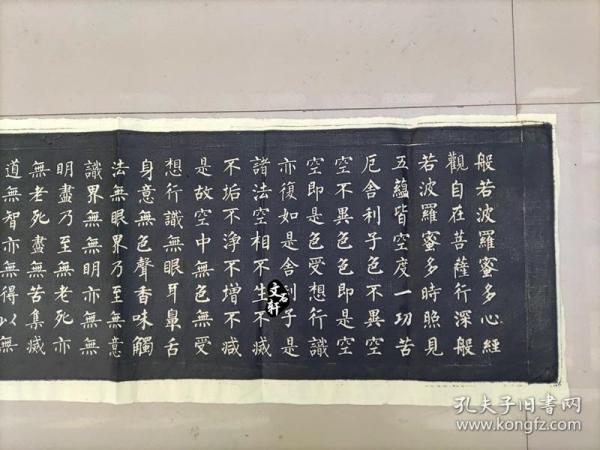 般若波羅蜜多心經
觀自在菩薩行深般
若波羅蜜多時照見
五蘊皆空度一切苦
厄舍利子色不異空
空不異色色即是空
空即是色受想行識
亦復如是舍利子是
諸法空相不生不滅
不垢不淨不增不減
是故空中無色無受
想行識無眼耳鼻舌
身意無色聲香味觸
法無眼界乃至無意
識界無無明亦無無
明盡乃至無老死亦
無老死盡無苦集滅
道無智亦無得以無
文石軒
孔夫子旧书网
www.kongfz.com